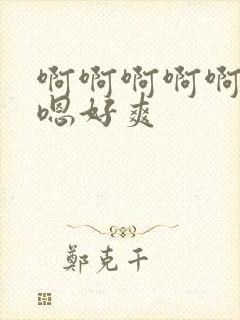 啊啊啊啊啊
嗯好爽
鄭克干